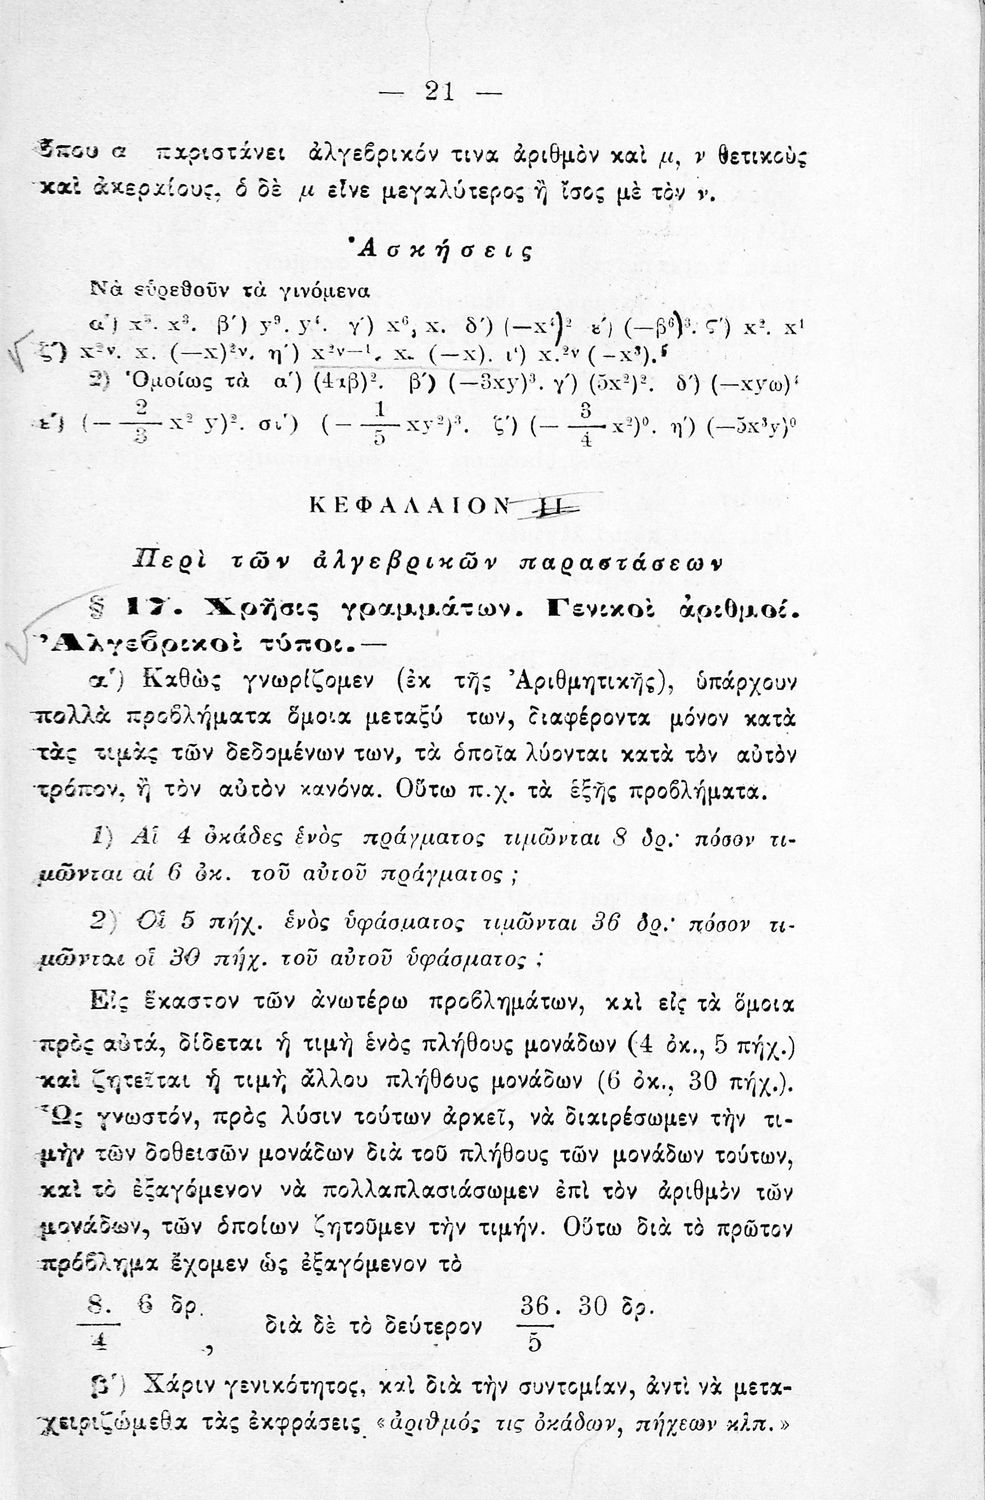 — 21 —
ὅπου α παριστάνει ἀλγεβρικόν τινα ἀριθμὸν καὶ μ, ν θετικοὺς
καὶ ἀκεραίους, ὁ δὲ μ εἶνε μεγαλύτερος ἢ ἴσος μὲ τὸν ν.
Ἀσκήσεις
Νὰ εὑρεθοῦν τὰ γινόμενα
α΄) x⁵. x³. β΄) y⁹. y⁴. γ΄) x⁶, x. δ΄) (—x⁴)² ε΄) (—β⁶)³. ϛ΄) x². x¹
ζ΄) x²ν. x. (—x)²ν. η΄) x²ν—¹. x. (—x). ι΄) x.²ν (-x³).⁵
2) Ὁμοίως τὰ α΄) (4αβ)². β΄) (—3xy)³. γ΄) (5x²)². δ΄) (—xyω)⁴
ε΄) (— 2/3 x² y)². σι΄) (— 1/5 xy²)³. ζ΄) (— 3/4 x²)⁰. η΄) (—5x³y)⁰
ΚΕΦΑΛΑΙΟΝ II
Περὶ τῶν ἀλγεβρικῶν παραστάσεων
§ 17. Χρῆσις γραμμάτων. Γενικοὶ ἀριθμοί.
Ἀλγεβρικοὶ τύποι.—
α΄) Καθὼς γνωρίζομεν (ἐκ τῆς Ἀριθμητικῆς), ὑπάρχουν
πολλὰ προβλήματα ὅμοια μεταξύ των, διαφέροντα μόνον κατὰ
τὰς τιμὰς τῶν δεδομένων των, τὰ ὁποῖα λύονται κατὰ τὸν αὐτὸν
τρόπον, ἢ τὸν αὐτὸν κανόνα. Οὕτω π.χ. τὰ ἑξῆς προβλήματα.
1) Αἱ 4 ὀκάδες ἑνὸς πράγματος τιμῶνται 8 δρ.· πόσον τι-
μῶνται αἱ 6 ὀκ. τοῦ αὐτοῦ πράγματος ;
2) Οἱ 5 πήχ. ἑνὸς ὑφάσματος τιμῶνται 36 δρ.· πόσον τι-
μῶνται οἱ 30 πήχ. τοῦ αὐτοῦ ὑφάσματος ;
Εἰς ἕκαστον τῶν ἀνωτέρω προβλημάτων, καὶ εἰς τὰ ὅμοια
πρὸς αὐτά, δίδεται ἡ τιμὴ ἑνὸς πλήθους μονάδων (4 ὀκ., 5 πήχ.)
καὶ ζητεῖται ἡ τιμὴ ἄλλου πλήθους μονάδων (6 ὀκ., 30 πήχ.).
Ὡς γνωστόν, πρὸς λύσιν τούτων ἀρκεῖ, νὰ διαιρέσωμεν τὴν τι-
μὴν τῶν δοθεισῶν μονάδων διὰ τοῦ πλήθους τῶν μονάδων τούτων,
καὶ τὸ ἐξαγόμενον νὰ πολλαπλασιάσωμεν ἐπὶ τὸν ἀριθμὸν τῶν
μονάδων, τῶν ὁποίων ζητοῦμεν τὴν τιμήν. Οὕτω διὰ τὸ πρῶτον
πρόβλημα ἔχομεν ὡς ἐξαγόμενον τὸ
8. 6 δρ. / 4 , διὰ δὲ τὸ δεύτερον 36. 30 δρ. / 5
β΄) Χάριν γενικότητος, καὶ διὰ τὴν συντομίαν, ἀντὶ νὰ μετα-
χειριζώμεθα τὰς ἐκφράσεις «ἀριθμός τις ὀκάδων, πήχεων κλπ.»